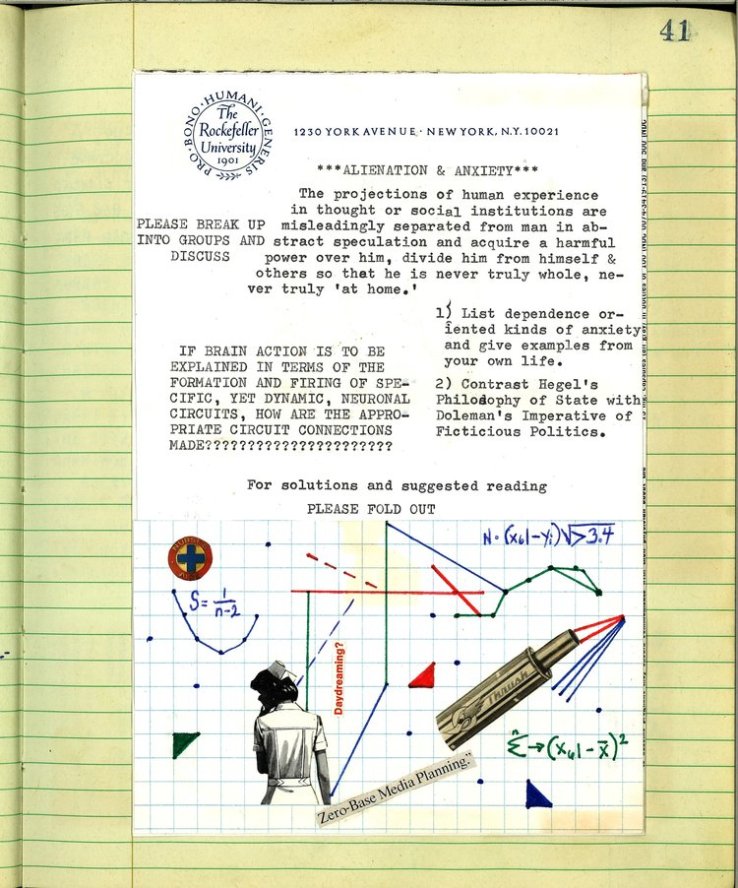 41
PRO·BONO·HUMANI·GENERIS
The
Rockefeller
University
1901
1230 YORK AVENUE · NEW YORK, N.Y. 10021
***ALIENATION & ANXIETY***
PLEASE BREAK UP
INTO GROUPS AND
DISCUSS
The projections of human experience
in thought or social institutions are
misleadingly separated from man in ab-
stract speculation and acquire a harmful
power over him, divide him from himself &
others so that he is never truly whole, ne-
ver truly 'at home.'
1) List dependence or-
iented kinds of anxiety
and give examples from
your own life.
IF BRAIN ACTION IS TO BE
EXPLAINED IN TERMS OF THE
FORMATION AND FIRING OF SPE-
CIFIC, YET DYNAMIC, NEURONAL
CIRCUITS, HOW ARE THE APPRO-
PRIATE CIRCUIT CONNECTIONS
MADE???????????????????????
2) Contrast Hegel's
Philosophy of State with
Doleman's Imperative of
Ficticious Politics.
For solutions and suggested reading
PLEASE FOLD OUT
N·(x61-yi)√>3.4
S=1/n-2
Daydreaming?
Thrush
Σ̂→(x61-x̄)²
Zero-Base Media Planning."